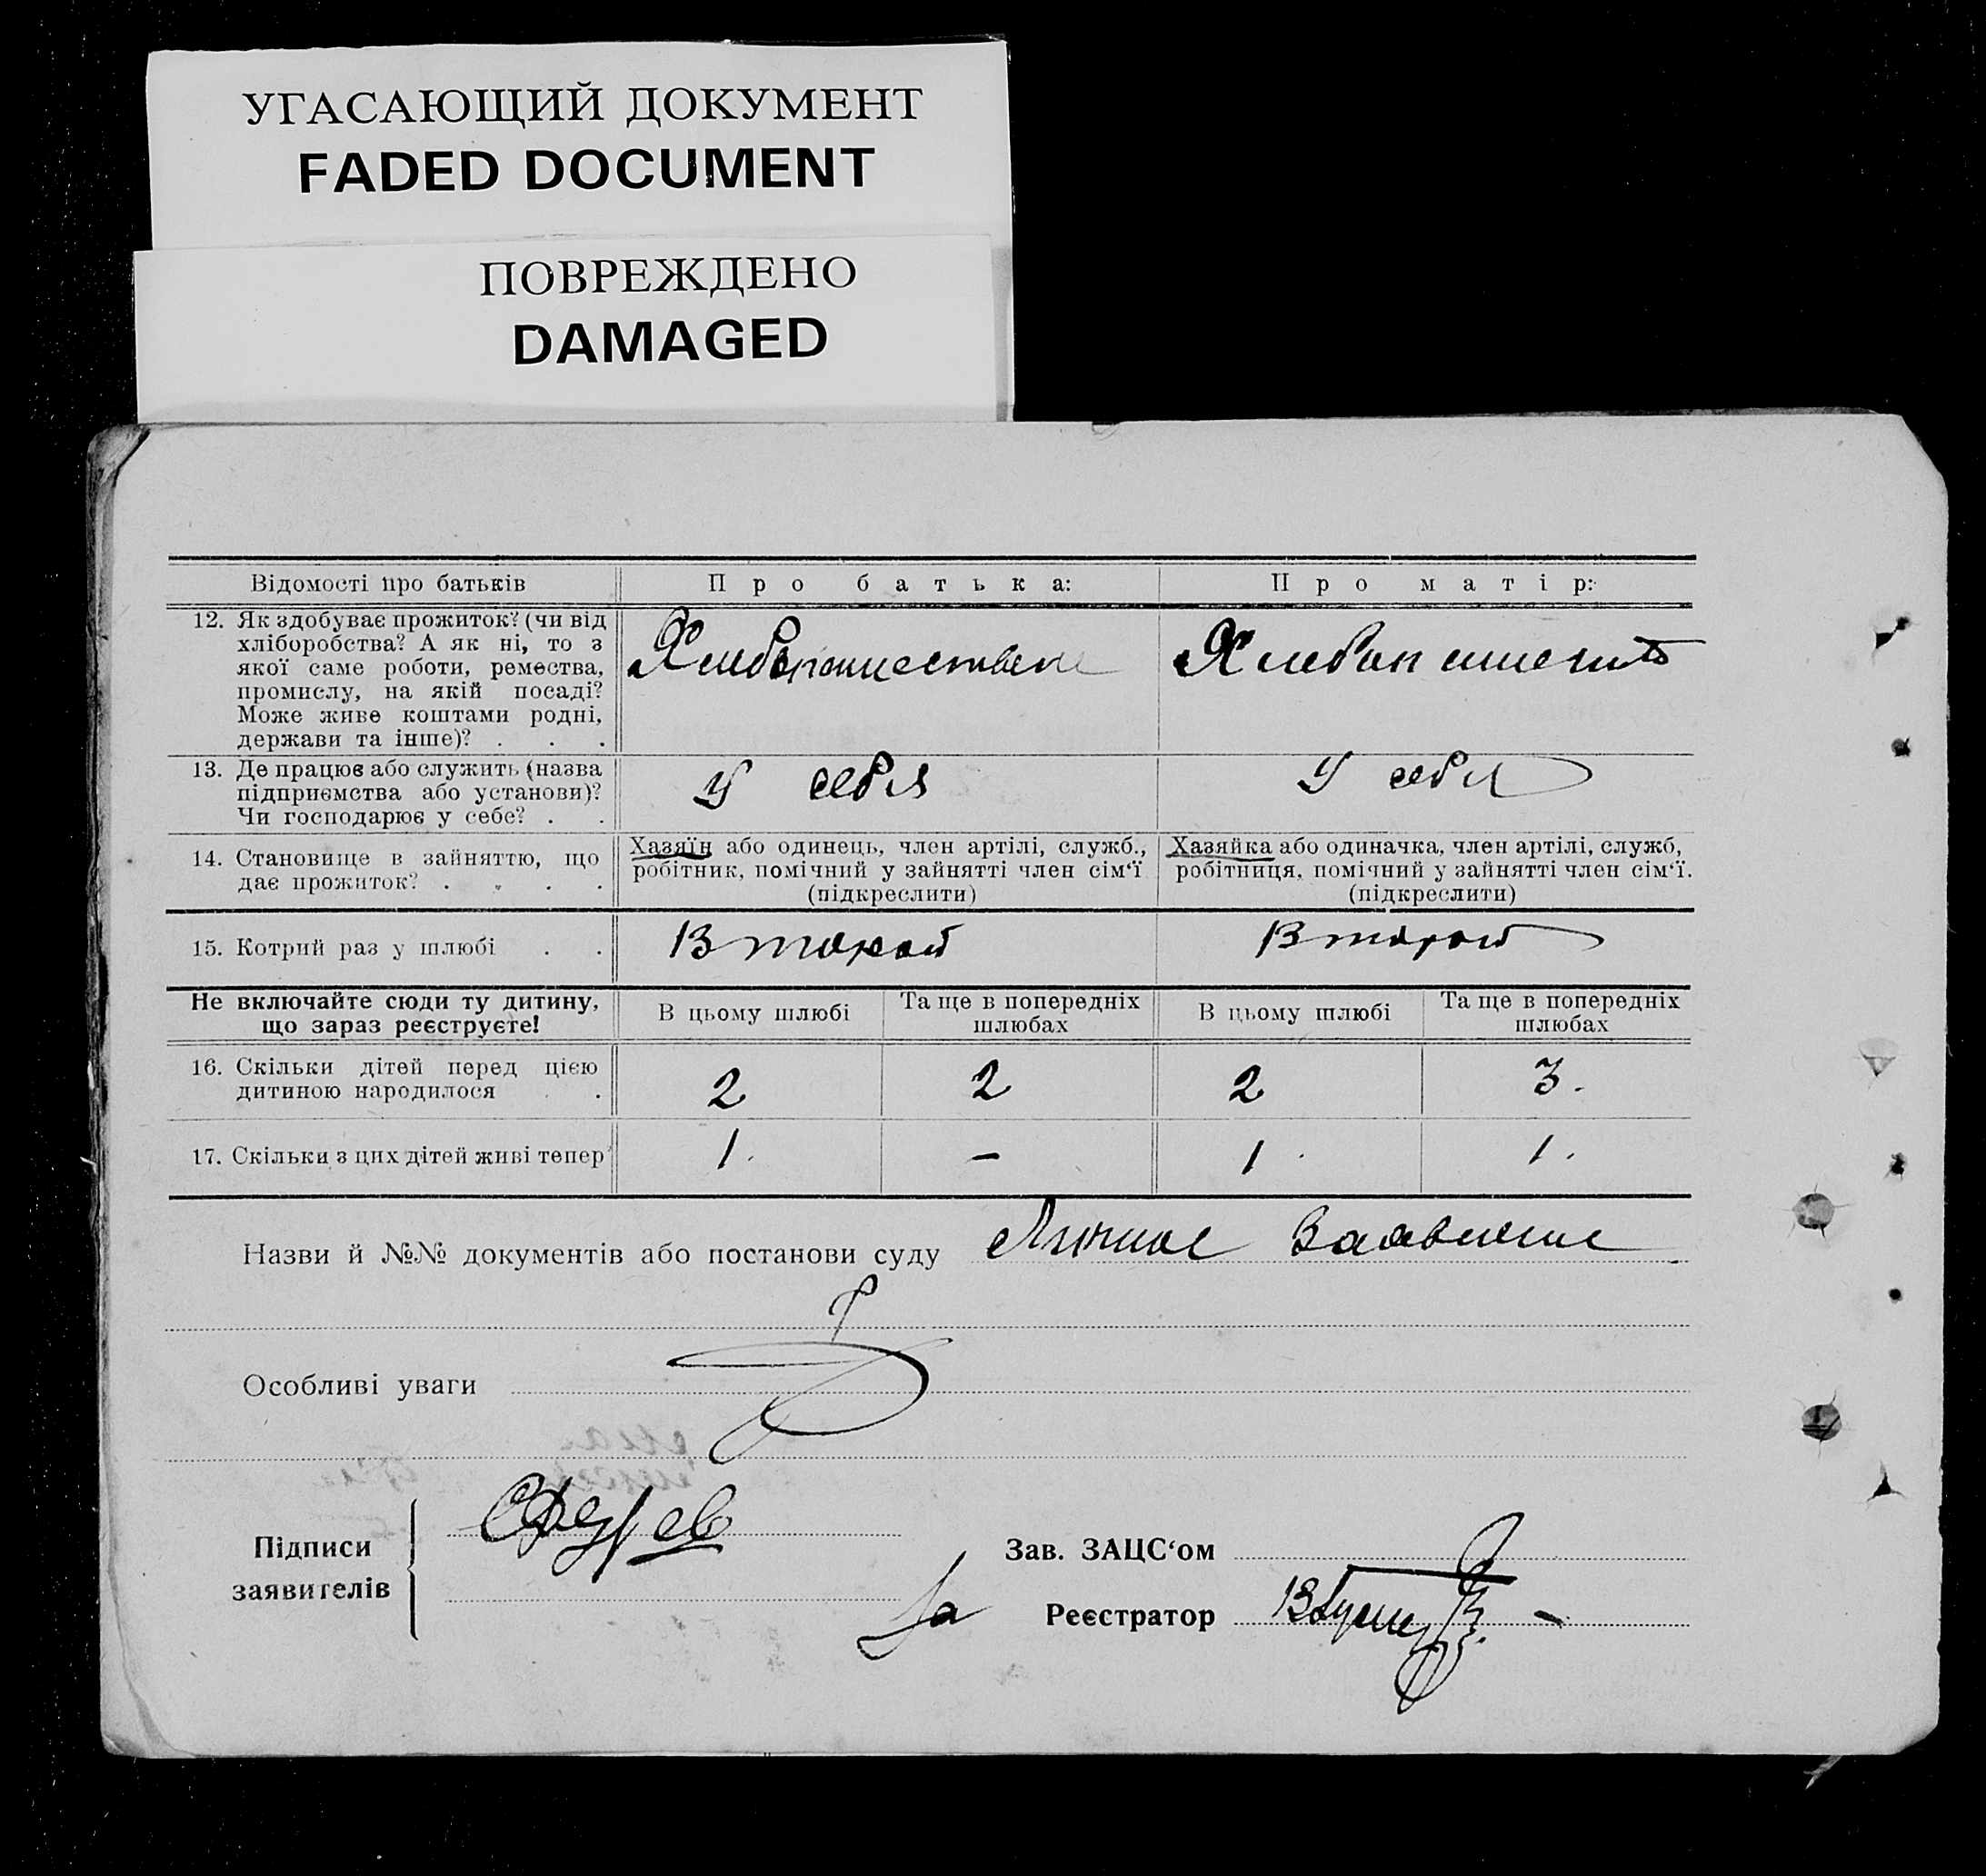 УГАСАЮЩИЙ ДОКУМЕНТ
FADED DOCUMENT
ПОВРЕЖДЕНО
DAMAGED
Відомості про батьків
Про батька:
Про матір:
12. Як здобуває прожиток? (чи від
хліборобства? А як ні, то з
якої саме роботи, ремества,
промислу, на якій посаді?
Може живе коштами родні,
держави та інше)? . . .
Хлебопашеством
Хлебопашеств
13. Де працює або служить (назва
підприємства або установи)?
Чи господарює у себе? . .
У себя
У себя
14. Становище в зайняттю, що
дає прожиток? . . . .
Хазяїн або одинець, член артілі, служб.,
робітник, помічний у зайнятті член сім'ї
(підкреслити)
Хазяйка або одиначка, член артілі, служб,
робітниця, помічний у зайнятті член сім'ї.
(підкреслити)
15. Котрий раз у шлюбі . .
Второй
Второй
Не включайте сюди ту дитину,
що зараз реєструєте!
В цьому шлюбі
Та ще в попередніх
шлюбах
В цьому шлюбі
Та ще в попередніх
шлюбах
16. Скільки дітей перед цією
дитиною народилося . .
2
2
2
3.
17. Скільки з цих дітей живі тепер
1.
–
1.
1.
Назви й №№ документів або постанови суду Личное Заявление
Особливі уваги
Підписи
заявителів
Зав. ЗАЦС'ом
За Реєстратор